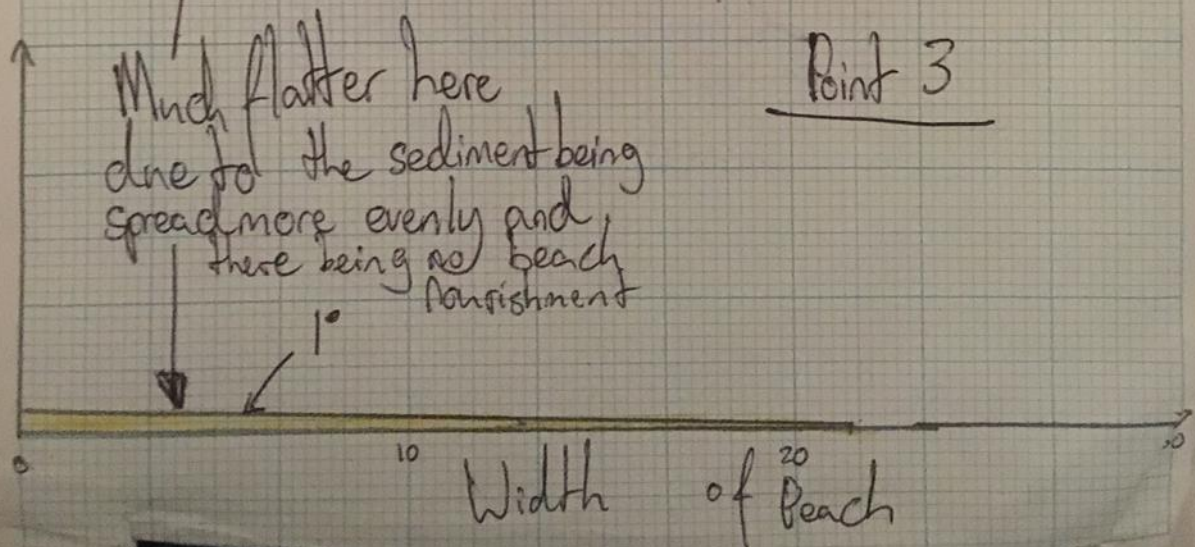 Point 3
Much flatter here
due to the sediment being
spread more evenly and
there being no beach
nourishment
1°
0
10
20
Width of Beach